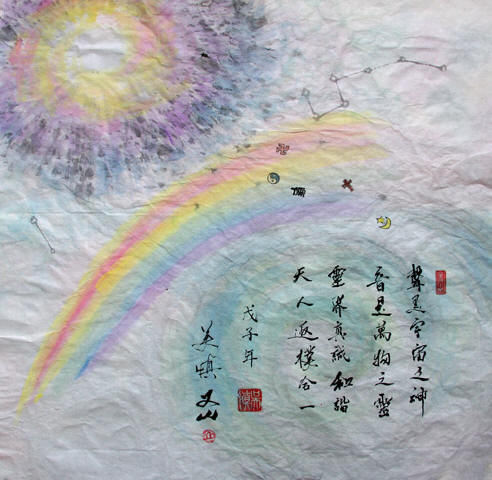 聲是宇宙之神
音是萬物之靈
靈真誠和諧
天人返樸合一
戊子年